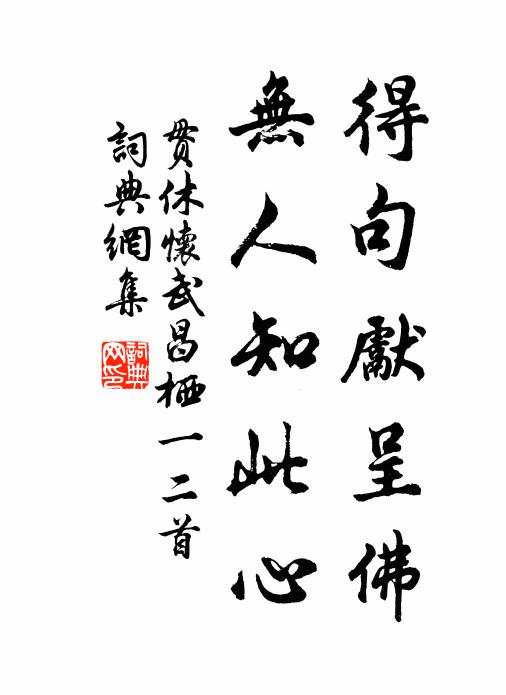 得句獻呈佛
無人知此心
貫休懷武昌栖一二首
詞典網集
詞典網印